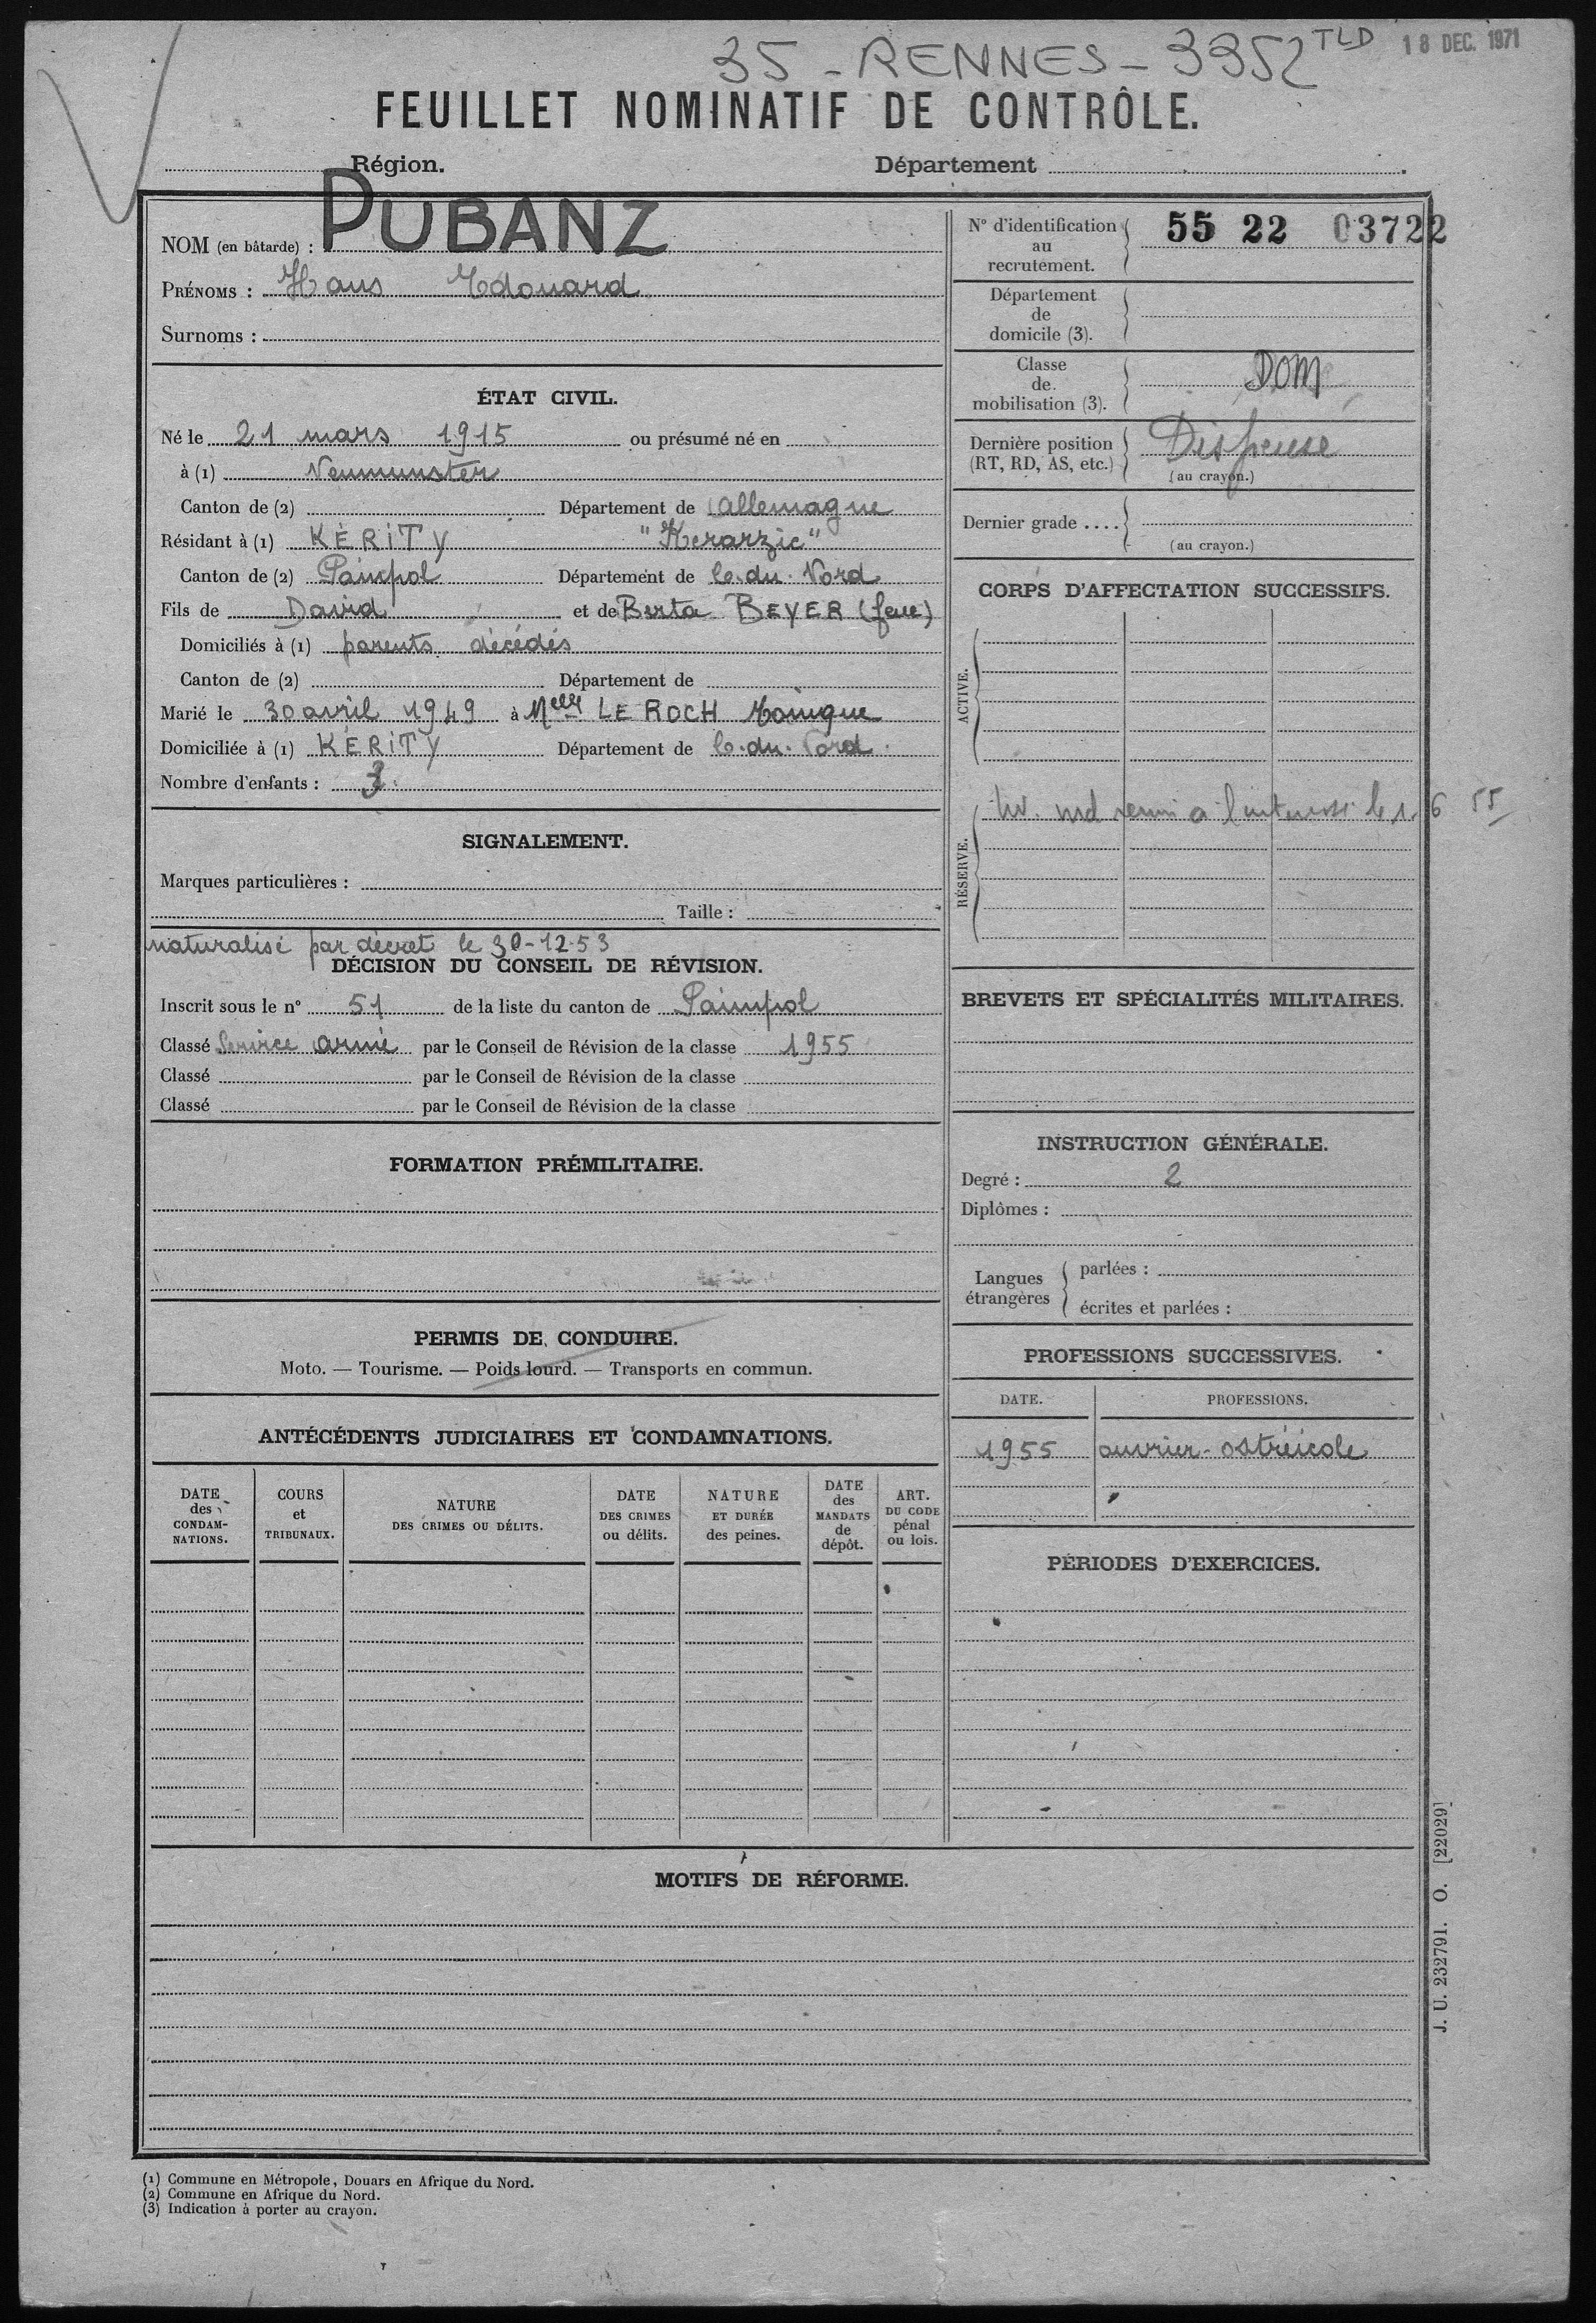 35 - RENNES - 3352 TLD
18 DEC. 1971
FEUILLET NOMINATIF DE CONTRÔLE.
Région.
Département
NOM (en bâtarde) : PUBANZ
PRÉNOMS : Hans Edouard
Surnoms :
ÉTAT CIVIL.
Né le 21 mars 1915 ou présumé né en
à (1) Neumunster
Canton de (2) Département de allemagne
Résidant à (1) KÉRITY "Kerarzic"
Canton de (2) Paimpol Département de C. du Nord
Fils de David et de Berta BEYER (feue)
Domiciliés à (1) parents décédés
Canton de (2) Département de
Marié le 30 avril 1949 à Melle LE ROCH
Domiciliée à (1) KÉRITY Département de C. du Nord
Nombre d'enfants : 3
SIGNALEMENT.
Marques particulières :
Taille :
naturalisé par décret le 30-12-53
DÉCISION DU CONSEIL DE RÉVISION.
Inscrit sous le n° 51 de la liste du canton de Paimpol
Classé Service armé par le Conseil de Révision de la classe 1955
Classé par le Conseil de Révision de la classe
Classé par le Conseil de Révision de la classe
FORMATION PRÉMILITAIRE.
PERMIS DE CONDUIRE.
Moto. — Tourisme. — Poids lourd. — Transports en commun.
ANTÉCÉDENTS JUDICIAIRES ET CONDAMNATIONS.
DATE
des
CONDAM-
NATIONS.
COURS
et
TRIBUNAUX.
NATURE
DES CRIMES OU DÉLITS.
DATE
DES CRIMES
ou délits.
NATURE
ET DURÉE
des peines.
DATE
des
MANDATS
de
dépôt.
ART.
DU CODE
pénal
ou lois.
N° d'identification
au
recrutement.
55 22 03722
Département
de
domicile (3).
Classe
de
mobilisation (3).
DOM
Dernière position
(RT, RD, AS, etc.)
Dispensé
(au crayon.)
Dernier grade ....
(au crayon.)
CORPS D'AFFECTATION SUCCESSIFS.
ACTIVE.
RÉSERVE.
liv. ind remis a l'interessé le 1. 6 55
BREVETS ET SPÉCIALITÉS MILITAIRES.
INSTRUCTION GÉNÉRALE.
Degré : 2
Diplômes :
Langues
étrangères
parlées :
écrites et parlées :
PROFESSIONS SUCCESSIVES.
DATE. PROFESSIONS.
1955 ouvrier-ostréicole
PÉRIODES D'EXERCICES.
MOTIFS DE RÉFORME.
J. U. 232791. O. [22029]
(1) Commune en Métropole, Douars en Afrique du Nord.
(2) Commune en Afrique du Nord.
(3) Indication à porter au crayon.